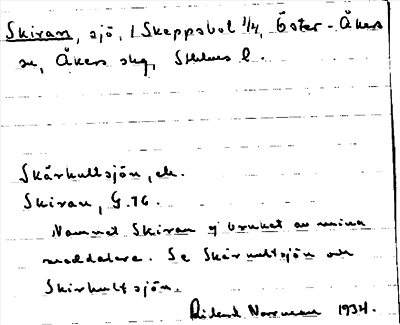 Skiran, sjö, i Skeppsbol 1/4, Öster-Åkers
sn, Åkers skg, Sthlms l.
Skärhultsjön, ek.
Skiran, G.76.
Namnet Skiran ej brukat av mina
meddelare. Se Skärhultsjön och
Skirhultsjön.
Rickard Norrman 1934.